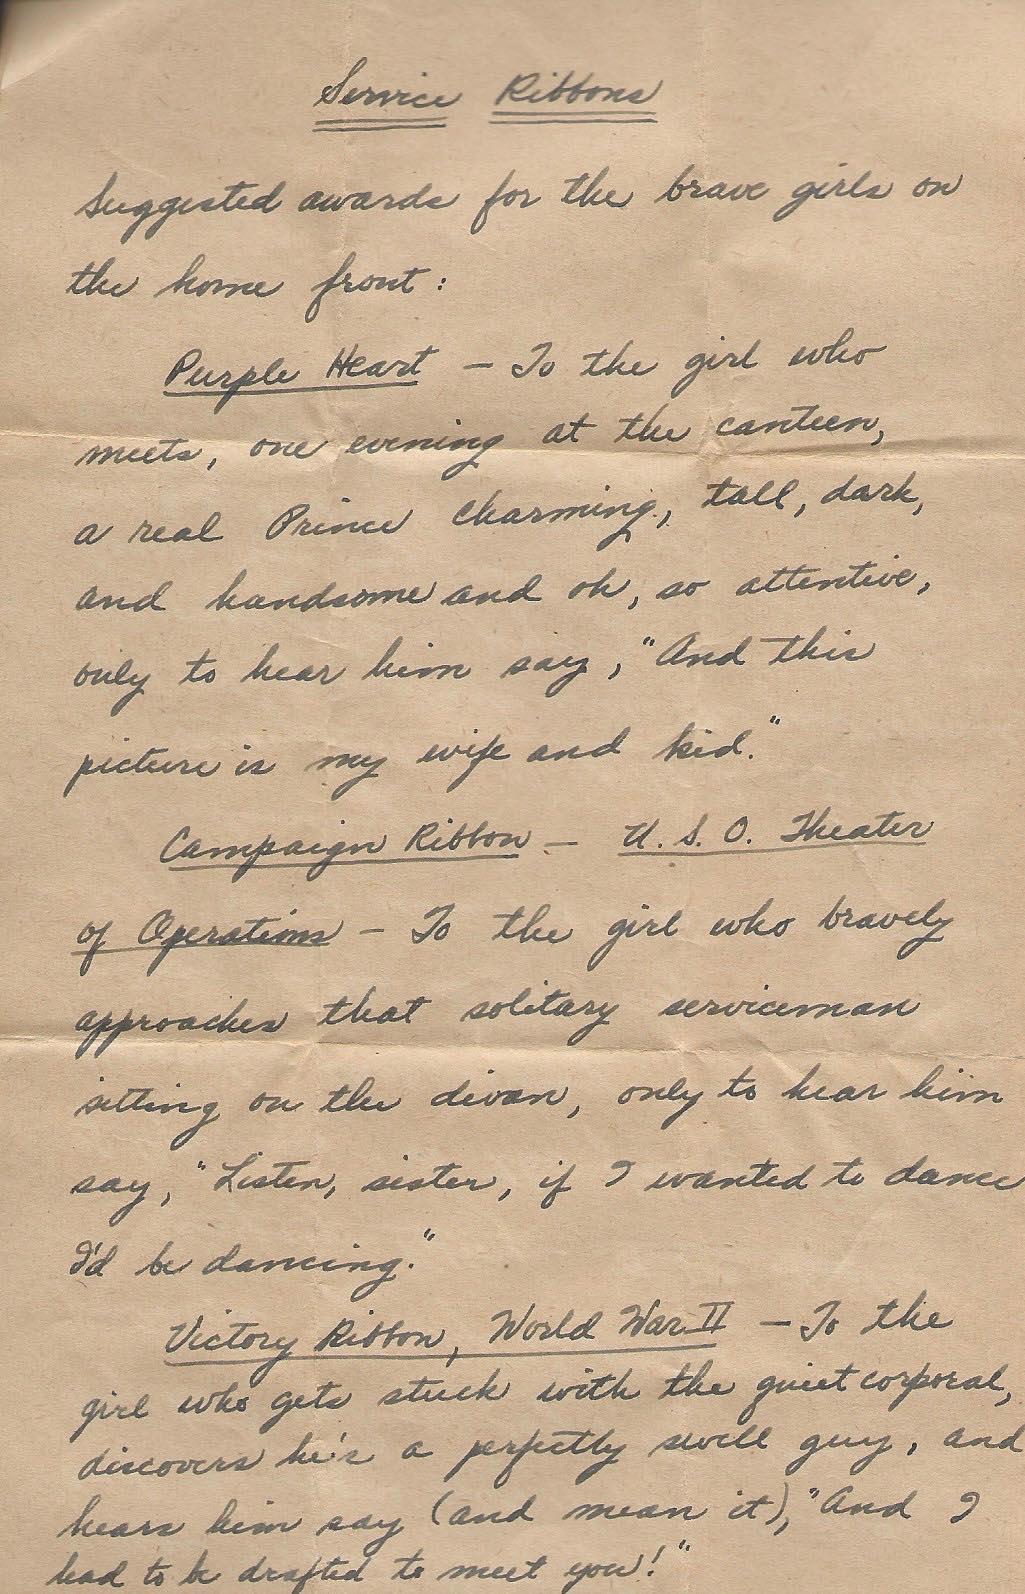 Service Ribbons
Suggested awards for the brave girls on
the home front:
Purple Heart - To the girl who
meets, one evening at the canteen,
a real Prince Charming, tall, dark,
and handsome and oh, so attentive,
only to hear him say, "And this
picture is my wife and kid."
Campaign Ribbon - U.S.O. Theater
of Operations - To the girl who bravely
approaches that solitary serviceman
sitting on the divan, only to hear him
say, "Listen, sister, if I wanted to dance
I'd be dancing."
Victory Ribbon, World War II - To the
girl who gets stuck with the quiet corporal,
discovers he's a perfectly swell guy, and
hears him say (and mean it), "And I
had to be drafted to meet you!"